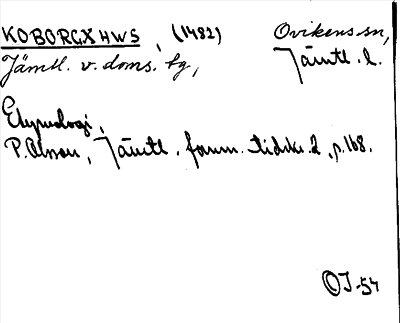 KOBORGXHWS, (1482) Ovikens sn,
Jämtl. v. doms. tg, Jämtl. l.
Etymologi,
P. Olsson, Jämtl. fornm. tidskr. 2, p. 168.
OJ-54